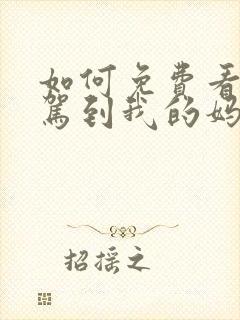 如何免费看
驾到我的妈
招摇之